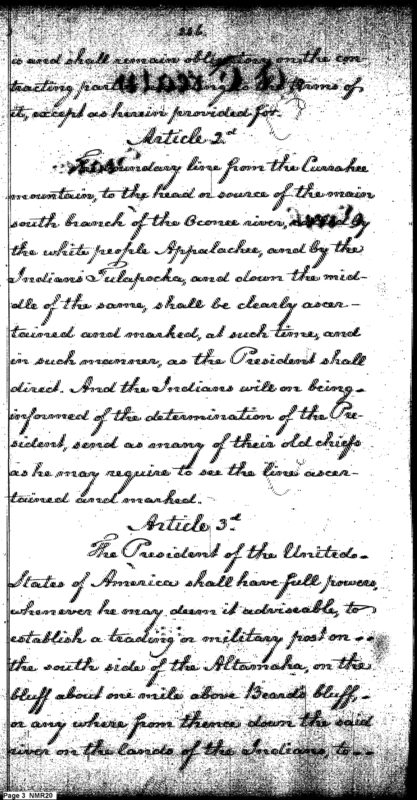 is and shall remain obligatory on the con-
tracting part to the terms of
it, except as herein provided for.
Article 2.d
boundary line from the Currahee
mountain, to the head or source of the main
south branch of the Oconee river, by
the white people Appalachee, and by the
Indians Tulapocka, and down the mid-
dle of the same, shall be clearly ascer-
tained and marked, at such time, and
in such manner, as the President shall
direct. And the Indians will on being
informed of the determination of the Pre-
sident, send as many of their old chiefs
as he may require to see the line ascer-
tained and marked.
Article 3.d
The President of the United
States of America shall have full powers,
whenever he may deem it adviseable, to
establish a trading or military post on
the south side of the Altamaha, on the
bluff about one mile above Beards bluff,
or any where from thence down the said
river on the lands of the Indians, to
Page 3 NMR20